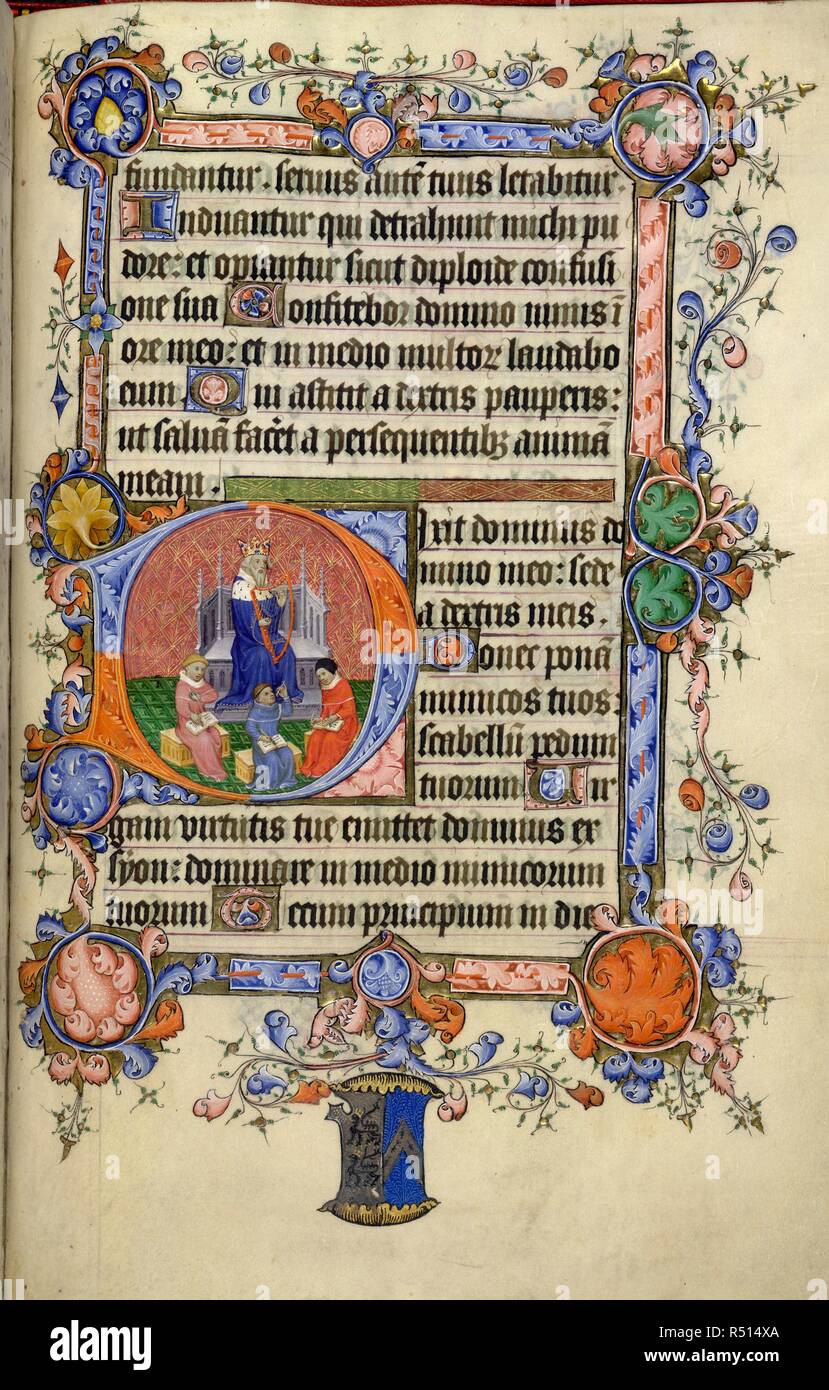 fundantur. seruus autē tuus letabitur.
Induantur qui detrahunt michi pu
dore: et operiantur sicut diploide confusi
one sua Confitebor domino nimis ī
ore meo: et in medio multoꝝ laudabo
eum. Qui astitit a dextris pauperis:
ut saluā facēt a persequentibꝫ animā
meam.
Dixit dominus do
mino meo: sede
a dextris meis.
Donec ponā
inimicos tuos:
scabellū pedum
tuorum Uir
gam virtutis tue emittet dominus ex
syon: dominare in medio inimicorum
tuorum Tecum principium in die
alamy
Image ID: R514XA
www.alamy.com